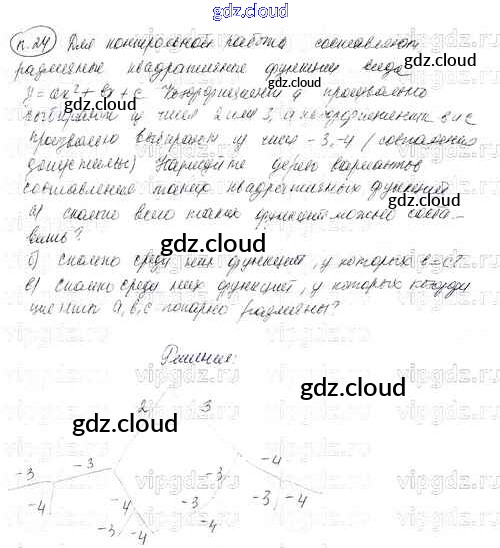 gdz.cloud
gdz.cloud
п.24 Для контрольной работы составляют
различные квадратичные функции вида
y = ax² + bx + c Коэффициент a произвольно
gdz.cloud
выбирают из чисел 2 или 3, а коэффициенты в и с
произвольно выбирают из чисел -3, -4 (совпадения
допустимы) Нарисуйте дерево вариантов
составление таких квадратичных функций
gdz.cloud
а) сколько всего таких функций можно соста-
вить?
gdz.cloud
б) сколько среди них функций, у которых в=с?
в) сколько среди них функций, у которых коэффи
циенты а, в, с попарно различны?
gdz.cloud
Решение:
gdz.cloud
2 3
gdz.cloud
-3 -3 -3 -4
-4 -4 -3 -3 -4
-3 -4 -4
gdz.cloud